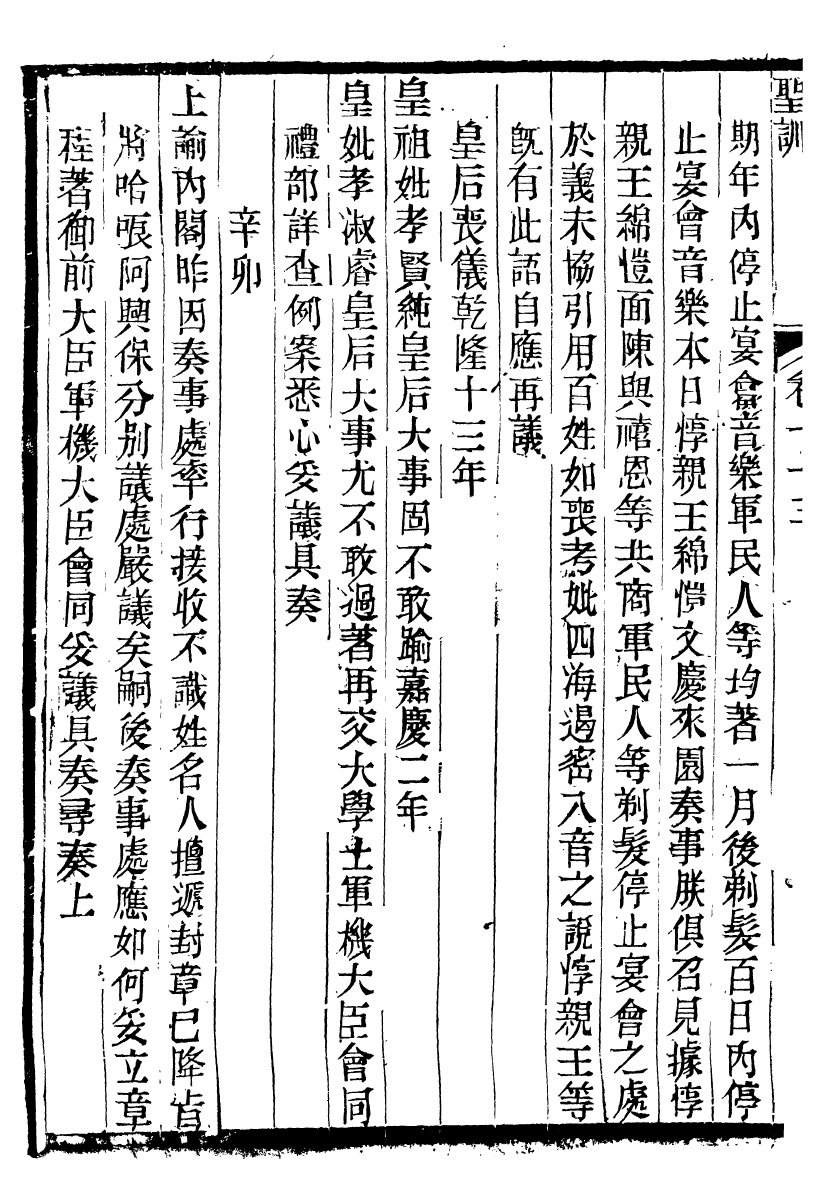 聖訓
卷一百十三
期年內停止宴會音樂軍民人等均著一月後剃髮百日內停
止宴會音樂本日惇親王綿愷文慶來園奏事朕俱召見據惇
親王綿愷面陳與禧恩等共商軍民人等剃髮停止宴會之處
於義未協引用百姓如喪考妣四海遏密八音之說惇親王等
既有此語自應再議
皇后喪儀乾隆十三年
皇祖妣孝賢純皇后大事固不敢踰嘉慶二年
皇妣孝淑睿皇后大事尤不敢過著再交大學士軍機大臣會同
禮部詳查例案悉心妥議具奏
辛卯
上諭內閣昨因奏事處率行接收不識姓名人擅遞封章已降旨
將哈哴阿興保分別議處嚴議矣嗣後奏事處應如何妥立章
程著御前大臣軍機大臣會同妥議具奏尋奏上